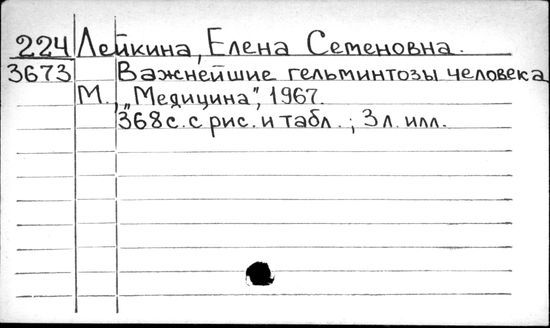 224 Лейкина, Елена Семеновна.
3673 Важнейшие гельминтозы человека
М., „Медицина", 1967.
368с. с рис. и табл.; 3л. илл.